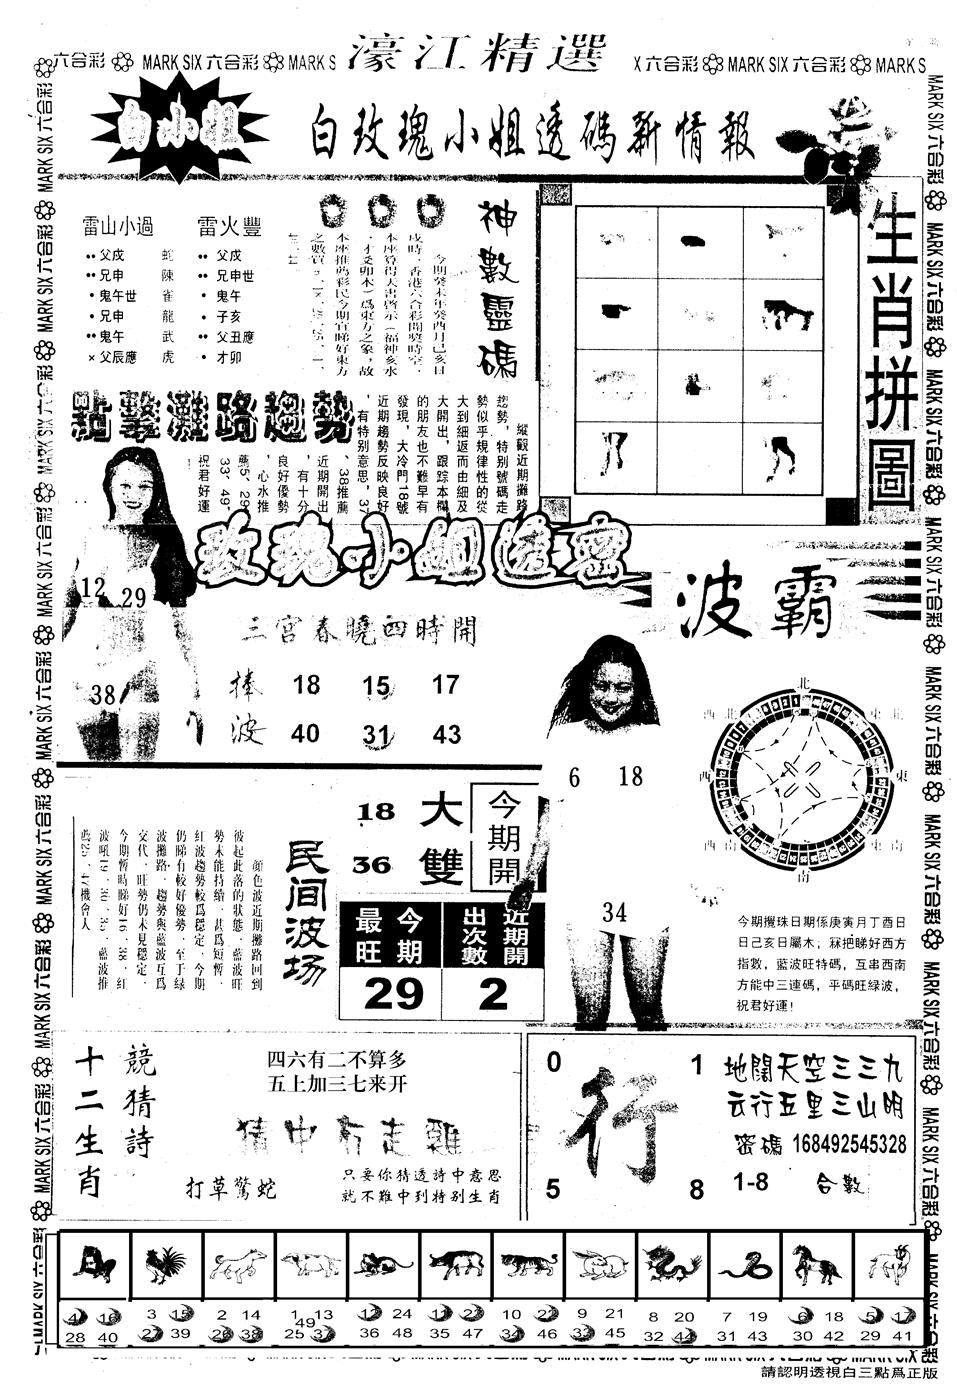 濠江精選
六合彩 MARK SIX 六合彩 MARK S
X 六合彩 MARK SIX 六合彩 MARK S
白小姐
白玫瑰小姐透碼新情報
雷山小過 雷火豐
父戌 蛇 父戌
兄申 陳 兄申世
鬼午世 雀 鬼午
兄申 龍 子亥
鬼午 武 父丑應
× 父辰應 虎 才卯
神數靈碼
今期癸未年癸酉月己亥日
戌時，香港六合彩開獎時空，
本座算得天書啓示（福神亥水
，才爻卯木）爲東方之象，故
本座推薦彩民今期宜睇好東方
生肖拼圖
點擊灘路趨勢
縱觀近期攤路
趋勢，特别號碼走
勢似乎規律性的從
大到細返而由細及
大開出，跟踪本欄
的朋友也不難早有
發現，大冷門18號
近期趨勢反映良好
，有特别意思，37
、38推薦
近期開出
，有十分
良好優勢
，心水推
薦5、29
33、49，
祝君好運
玫瑰小姐透密
12 29
38
三宮春曉四時開
捧 18 15 17
波 40 31 43
波霸
6 18
34
北
西北 東北
西 東
西南 東南
南
今期攪珠日期係庚寅月丁酉日
日己亥日屬木；冧把睇好西方
指數，藍波旺特碼，互串西南
方能中三連碼，平碼旺緑波，
祝君好運!
顔色波近期攤路回到
彼起此落的狀態，藍波旺
勢未能持續，甚爲短暫，
紅波趨勢較爲穩定，今期
仍睇有較好優勢，至于緑
波攤路，趨勢與藍波互爲
交代，旺勢仍未見穩定，
今期暫時睇好16、38，紅
波吼19、30、35，藍波推
薦25、47機會人
民间波场
18 大
36 雙
今期開
最旺 今期
29
出次數 近期開
2
十二生肖
競猜詩
四六有二不算多
五上加三七来开
猜中有走雞
打草驚蛇
只要你猜透詩中意思
就不難中到特别生肖
0 1
行
5 8
地闊天空三三九
云行五里三山明
密碼 168492545328
1-8 合數
4 16
28 40
3 15
27 39
2 14
26 38
1 13
49
25 37
12 24
36 48
11 23
35 47
10 22
34 46
9 21
33 45
8 20
32 44
7 19
31 43
6 18
30 42
5 17
29 41
請認明透視白三點爲正版